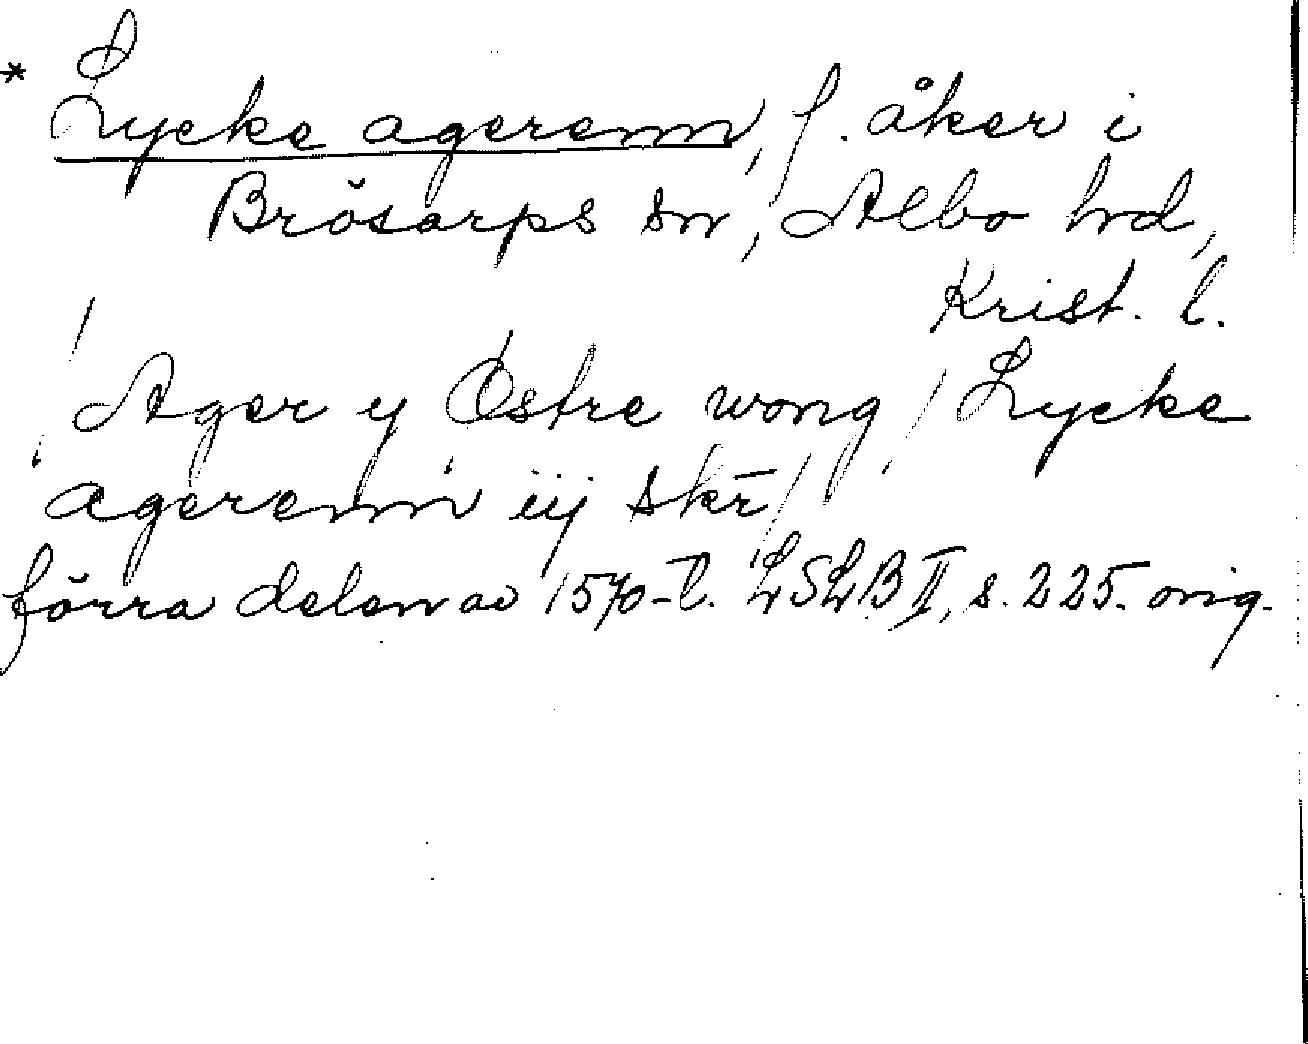 * Lycke agerenn, f. åker i
Brösarps sn, Albo hd,
Krist. l.
/ Ager y Østre wong / Lycke
agerenn iij skr /
förra delen av 1570-t. LSLB II, s. 225. orig.